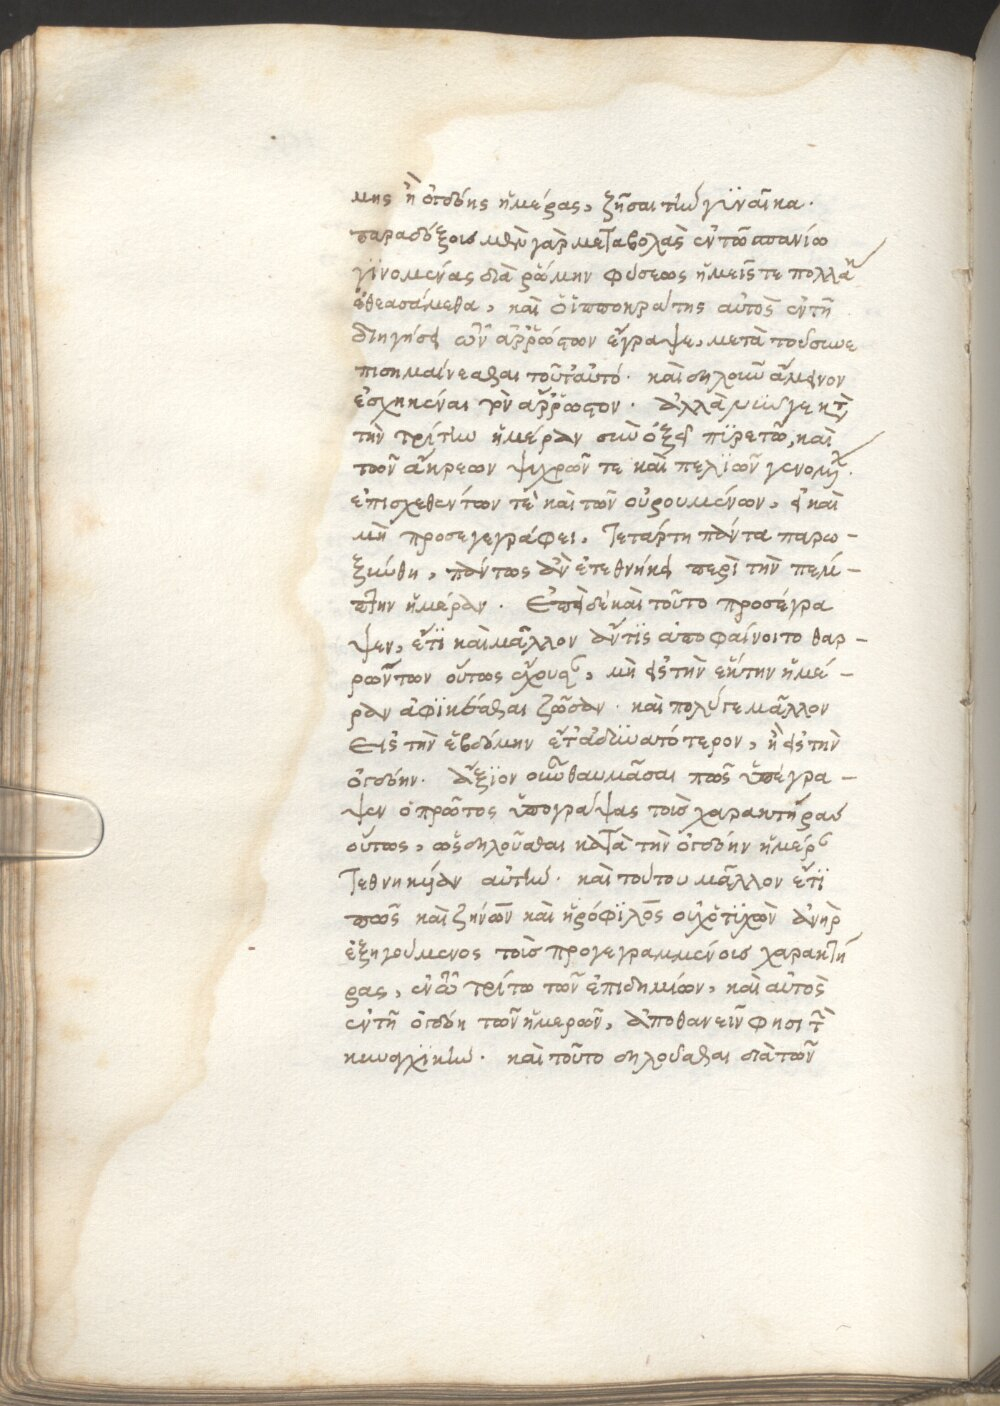 μης ἢ ὀγδόης ἡμέρας, ζῆσαι τὴν γυναῖκα.
παραδόξοις μὲν γὰρ μεταβολὰς ἐν τῶ σπανίω
γινομένας διὰ ῥώμην φύσεως ἡμεῖς τε πολλὰ
ἐθεασάμεθα, καὶ ὁ ἱπποκράτης αὐτὸς ἐν τῆ
διηγήσει τῶν ἀρρώστων ἔγραψε, μετὰ τοῦ συνε
πισημαίνεσθαι τοῦτ' αὐτό. καὶ δηλοῦν ἄμεινον
ἐσχηκέναι τὸν ἄρρωστον. ἀλλὰ νῦν γε κατὰ
τὴν τρίτην ἡμέραν σὺν ὀξεῖ πυρετῶ, καὶ
τῶν ἀκρέων ψυχρῶν τε καὶ πελιῶν γενομένων.
ἐπισχεθέντων τε καὶ τῶν οὐρουμένων, εἰ καὶ
μὴ προσεγεγράφει, τετάρτη πάντα παρω-
ξύνθη, πάντως ἂν ἐτεθνήκει περὶ τὴν πέμ-
πτην ἡμέραν. ἐπεὶ δὲ καὶ τοῦτο προσέγρα
ψεν, ἔτι καὶ μᾶλλον ἄν τις ἀποφαίνοιτο θαρ-
ρῶν τῶν οὕτως ἐχουσ, μὴ εἰς τὴν ἕκτην ἡμέ-
ραν ἀφικέσθαι ζῶσαν. καὶ πολύ γε μᾶλλον
εἰς τὴν ἑβδόμην ἔτ' ἀδυνατότερον, ἢ εἰς τὴν
ὀγδόην. ἄξιον οὖν θαυμάσαι πῶς ὑπέγρα-
ψεν ὁ πρῶτος ὑπογράψας τοὺς χαρακτῆρας
οὕτως, ὡς δηλοῦσθαι κατὰ τὴν ὀγδόην ἡμέρ
τεθνηκυῖαν αὐτὴν. καὶ τούτου μᾶλλον ἔτι
πῶς καὶ ζήνων καὶ ἡρόφιλος οὐχ ὁ τυχὼν ἀνὴρ
ἐξηγούμενος τοῖς προγεγραμμένοις χαρακτῆ
ρας, ἐν τῶ τρίτω τῶν ἐπιδημιῶν, καὶ αὐτὸς
ἐν τῆ ὀγδόη τῶν ἡμερῶν, ἀποθανεῖν φησι τὴν
κυναγχικὴν. καὶ τοῦτο δηλοῦσθαι διὰ τῶν